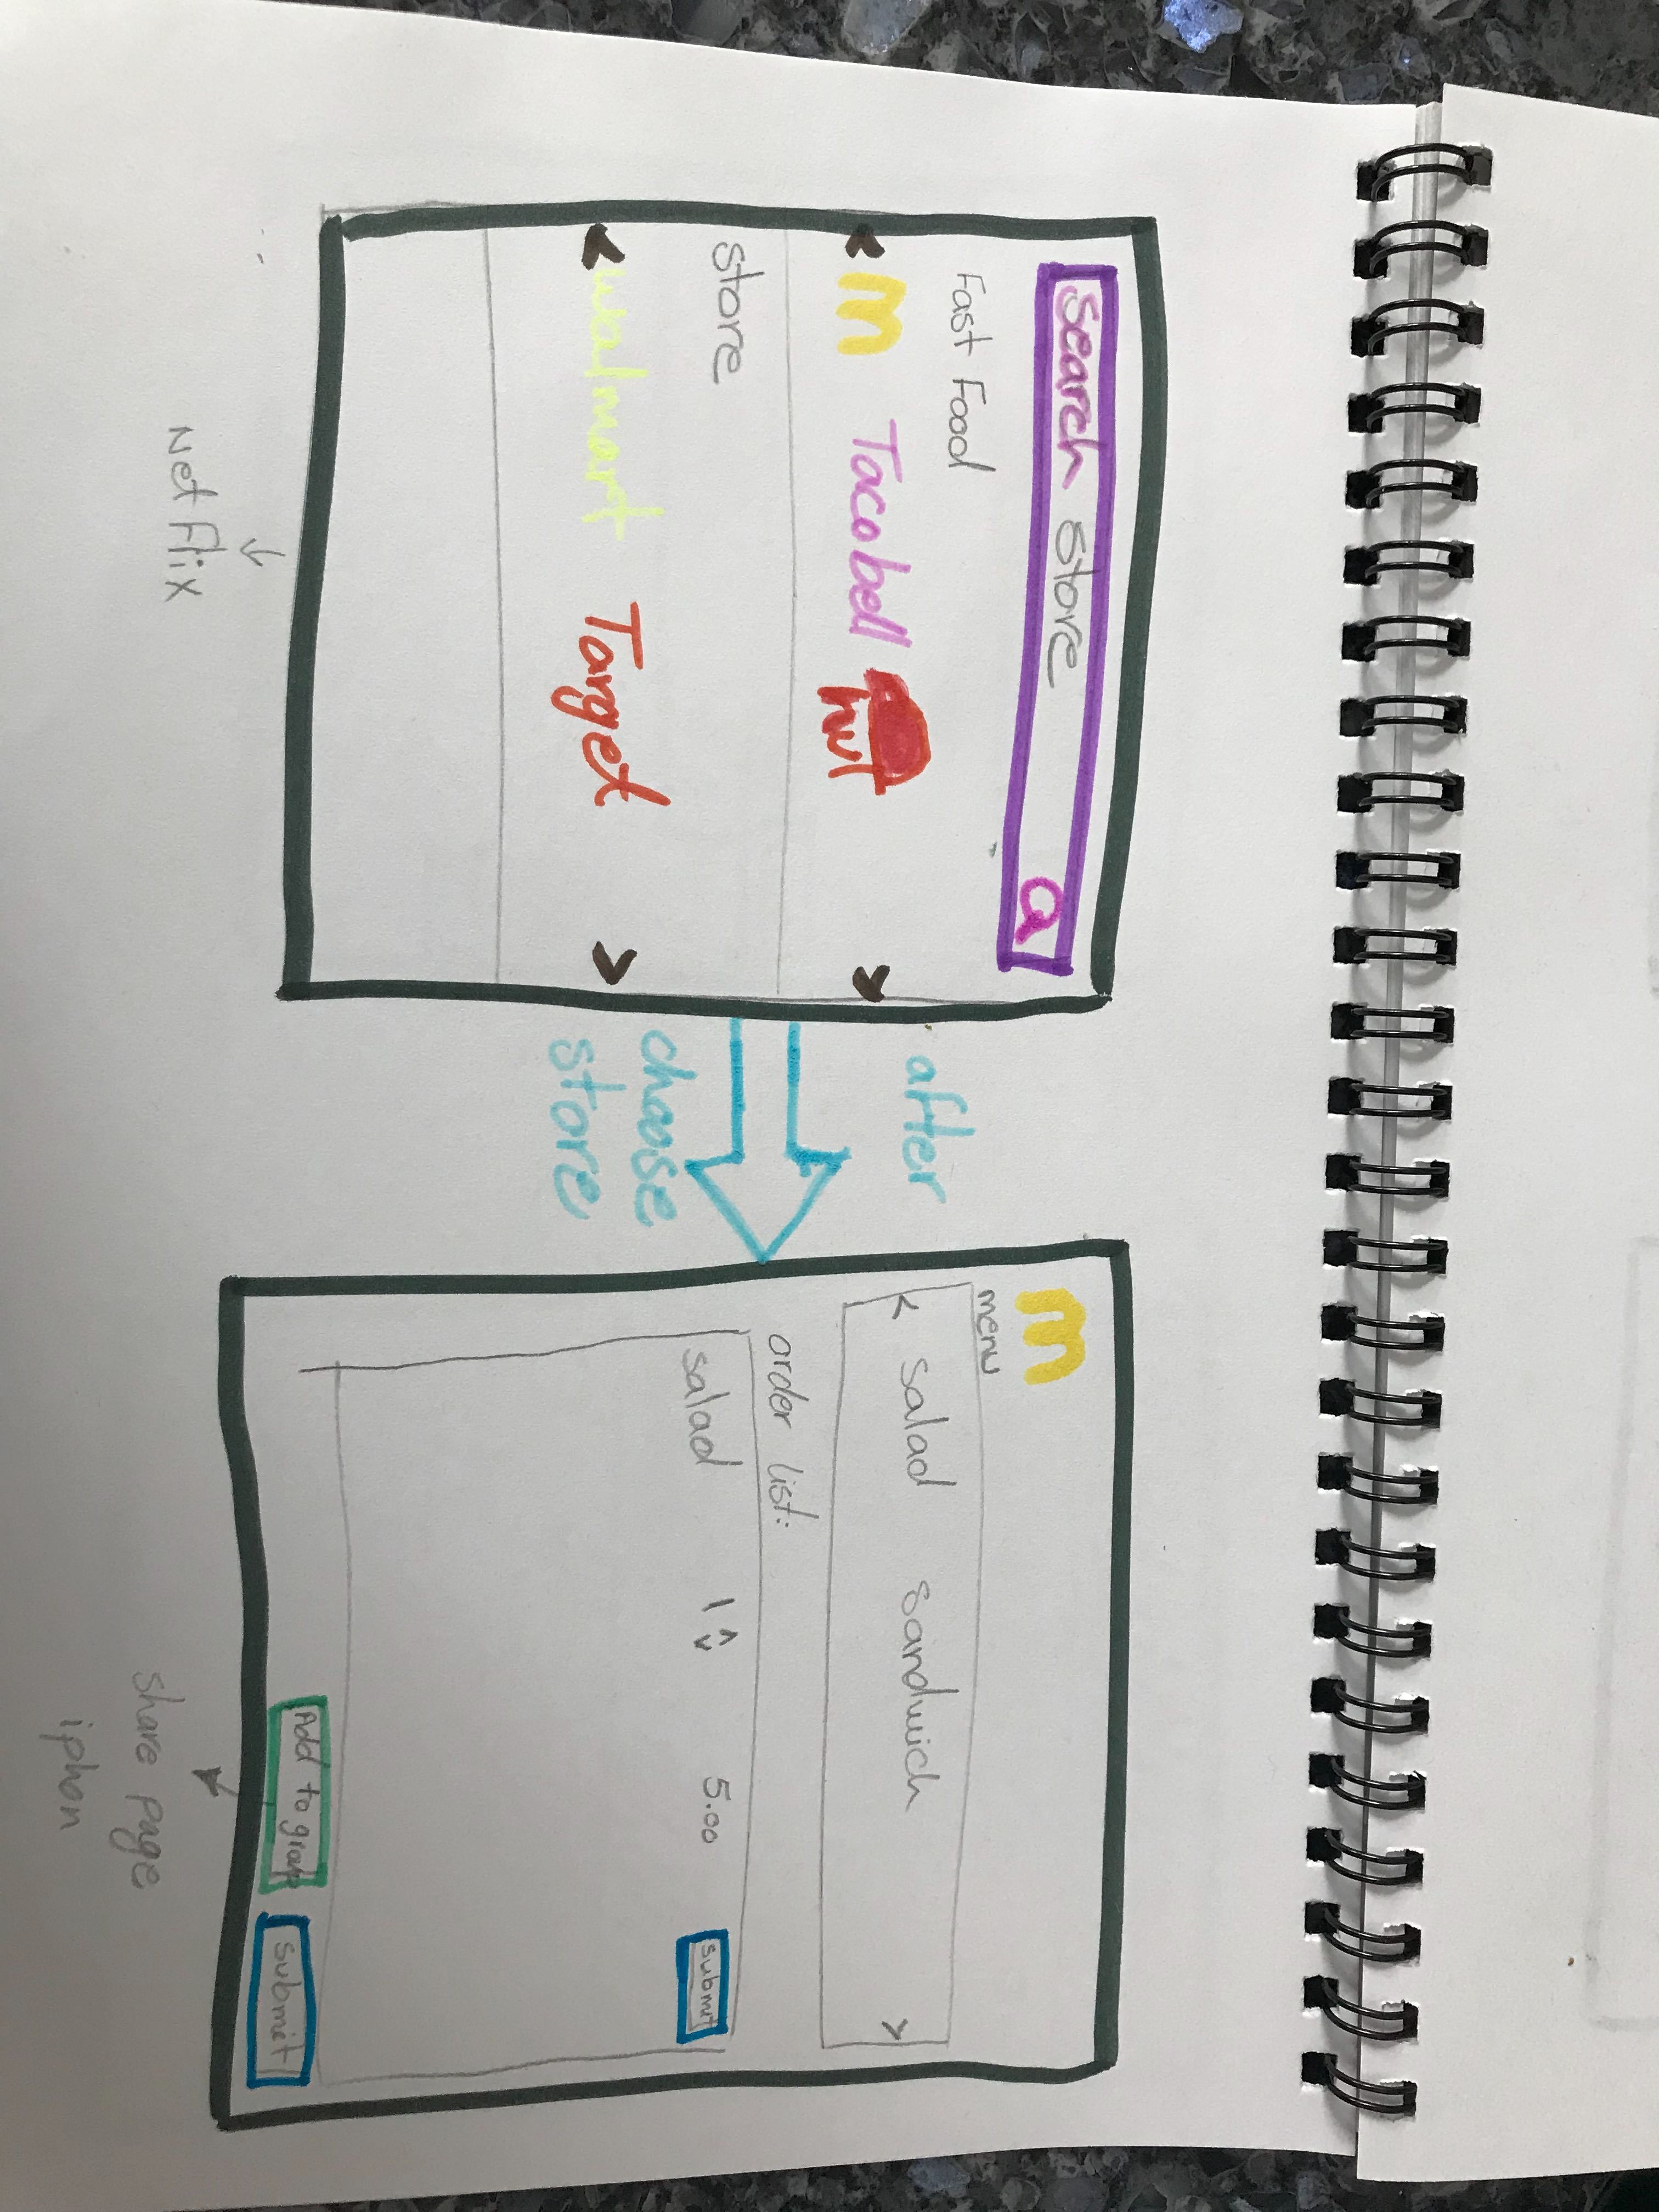 Search store
Fast Food
< M Tacobell hut >
store
< walmart Target >
Netflix
after
choose
store
M
menu
< salad sandwich >
order list:
salad 1 5.00 submit
Add to group submit
share page
iphon